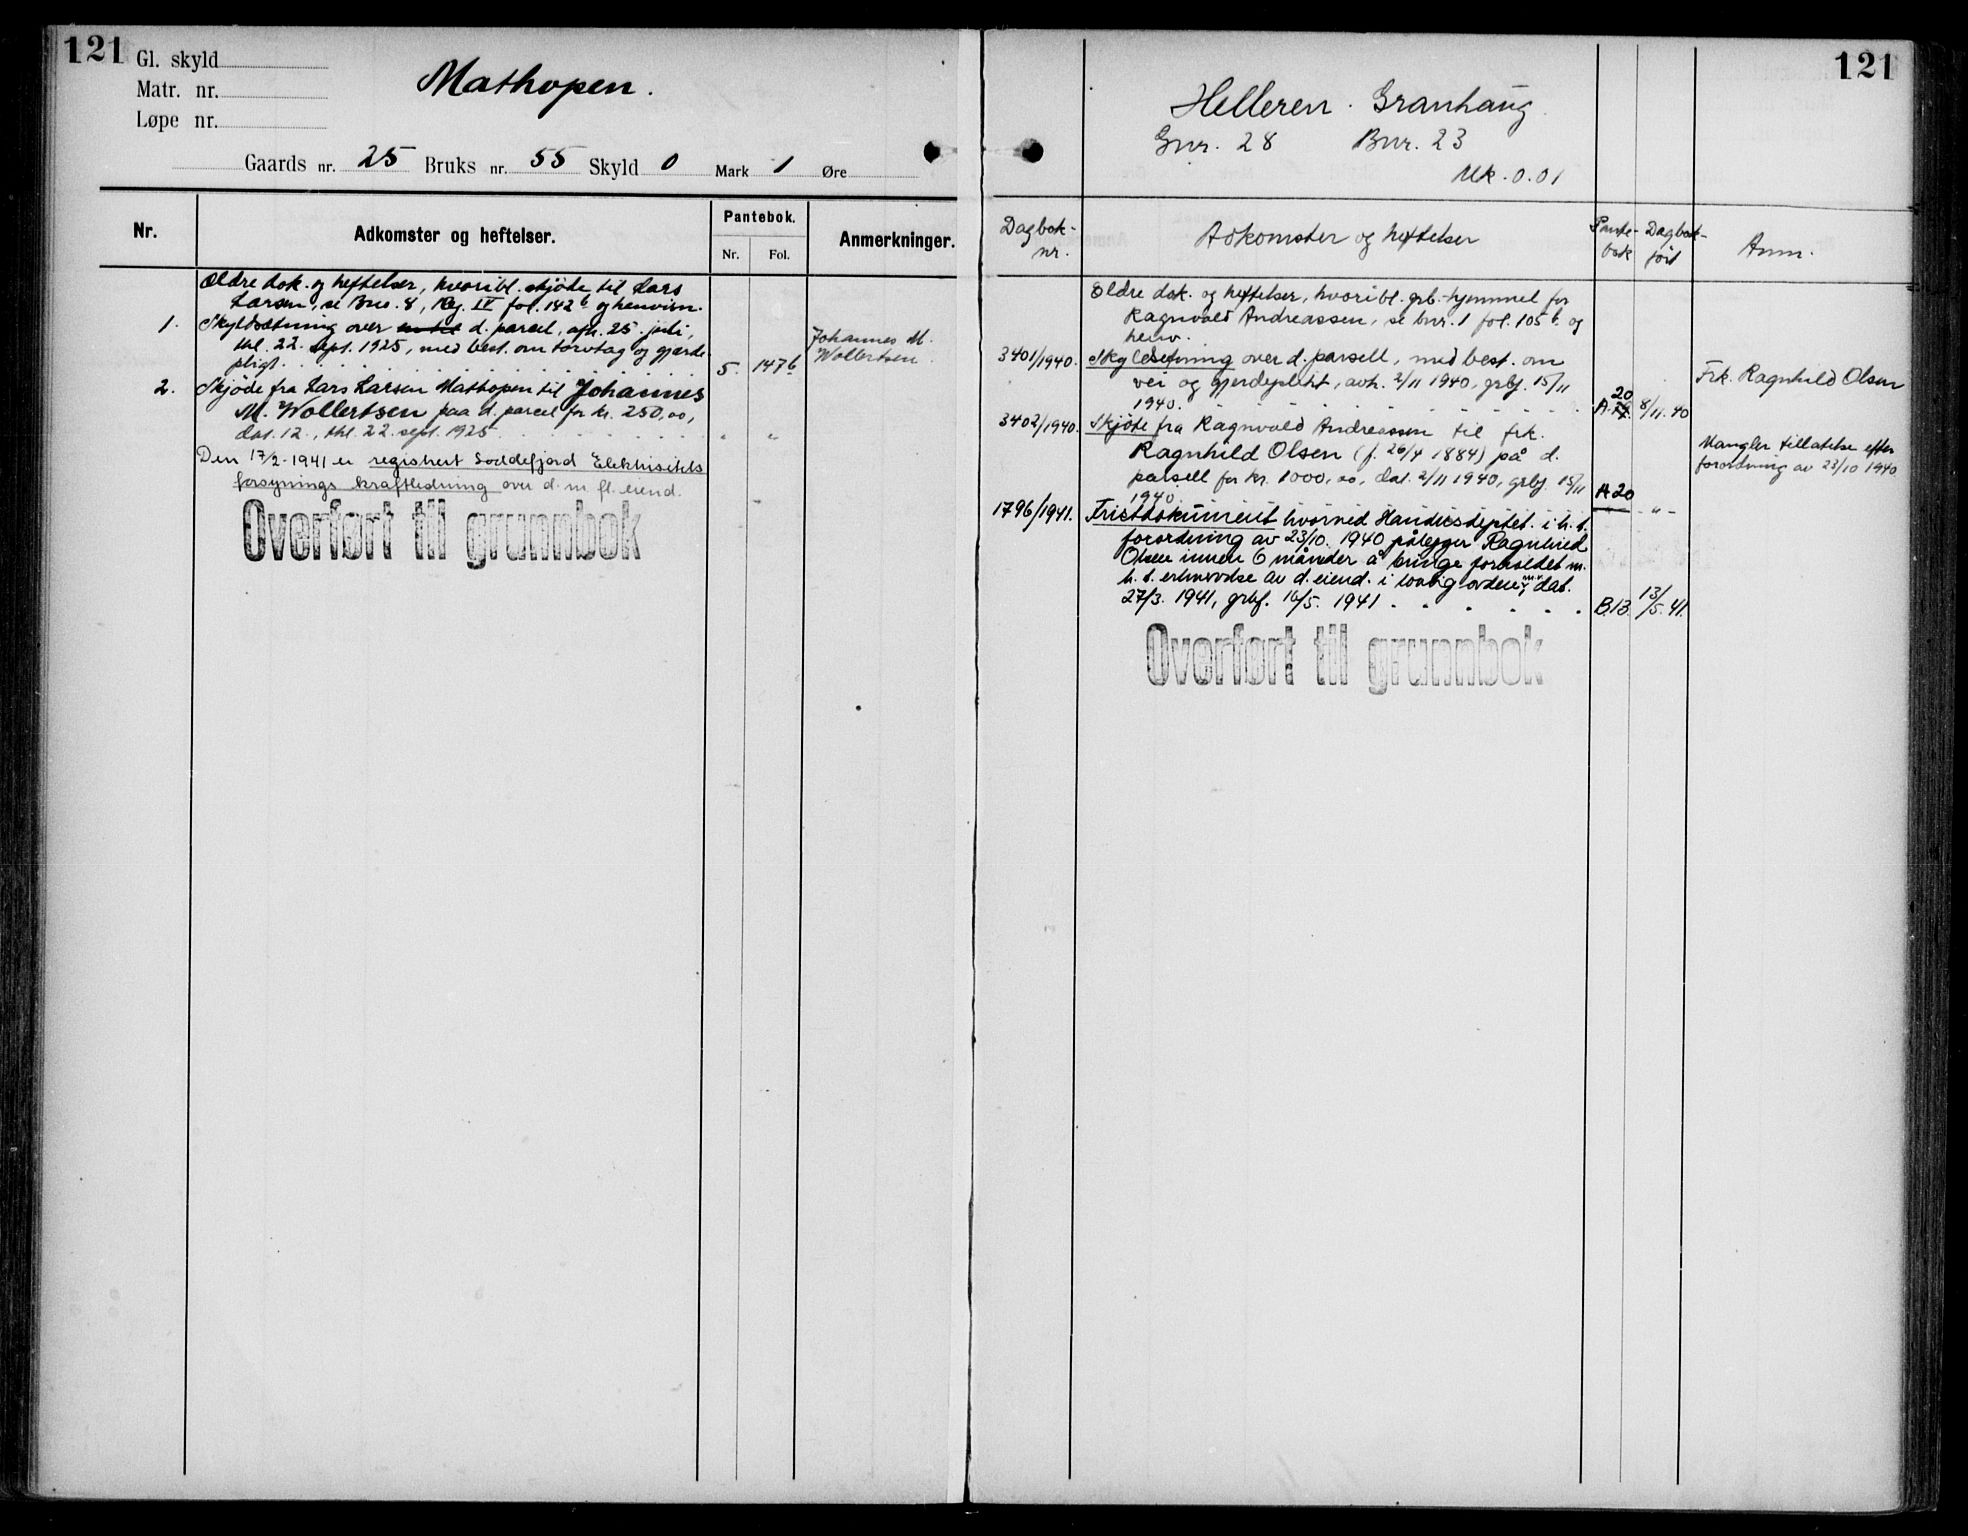 121
Gl. skyld
Matr. nr.
Løpe nr.
Mathopen.
Gaards nr. 25 Bruks nr. 55 Skyld 0 Mark 1 Øre
Nr.
Adkomster og heftelser.
Pantebok.
Nr. Fol.
Anmerkninger.
Ældre dok. og heftelser, hvoribl. skjöde til Lars
Larsen, se Bno. 8, Reg. IV fol. 142 b og henvisn.
1. Skyldsætning over d. parcel, afh. 25. juli,
thl. 22. sept. 1925, med best. om torvtag og gjærde-
pligt. 5. 147 b
Johannes M.
Wollertsen
2. Skjöde fra Lars Larsen Mathopen til Johannes
M. Wollertsen paa d. parcel for kr. 250,00,
dat. 12., thl. 22. sept. 1925 " "
Den 17/2-1941 er registrert Loddefjord Elektrisitets
forsynings kraftledning over d. m. fl. eiend.
Overført til grunnbok
121
Helleren. Granhaug
Gnr. 28 Bnr. 23
Mk. 0.01
Dagbok-
nr.
Adkomster og heftelser
Pante-
bok
Dagbok-
ført
Anm.
Eldre dok. og heftelser, hvoribl. grb.-hjemmel for
Ragnvald Andreassen, se bnr. 1 fol. 105 b. og
henv.
3401/1940. Skyldsetning over d. parsell, med best. om
vei og gjerdeplikt, avh. 2/11 1940, grbf. 15/11
1940. A. 20 8/11. 40
Frk. Ragnhild Olsen
3402/1940. Skjöte fra Ragnvald Andreassen til frk.
Ragnhild Olsen (f. 26/4 1884) på d.
parsell for kr. 1000,00, dat. 2/11 1940, grbf. 15/11
1940. A 20 - " -
Mangler tillatelse efter
forordning av 23/10 1940
1796/1941. Fristdokument hvorved Handelsdeptet. i h. t.
forordning av 23/10. 1940 pålegger Ragnhild
Olsen innen 6 måneder å bringe forholdet m.
h. t. ervervelse av d. eiend. i lovlig orden, dat.
27/3. 1941, grbf. 16/5. 1941 B 13. 13/5. 41.
Overført til grunnbok